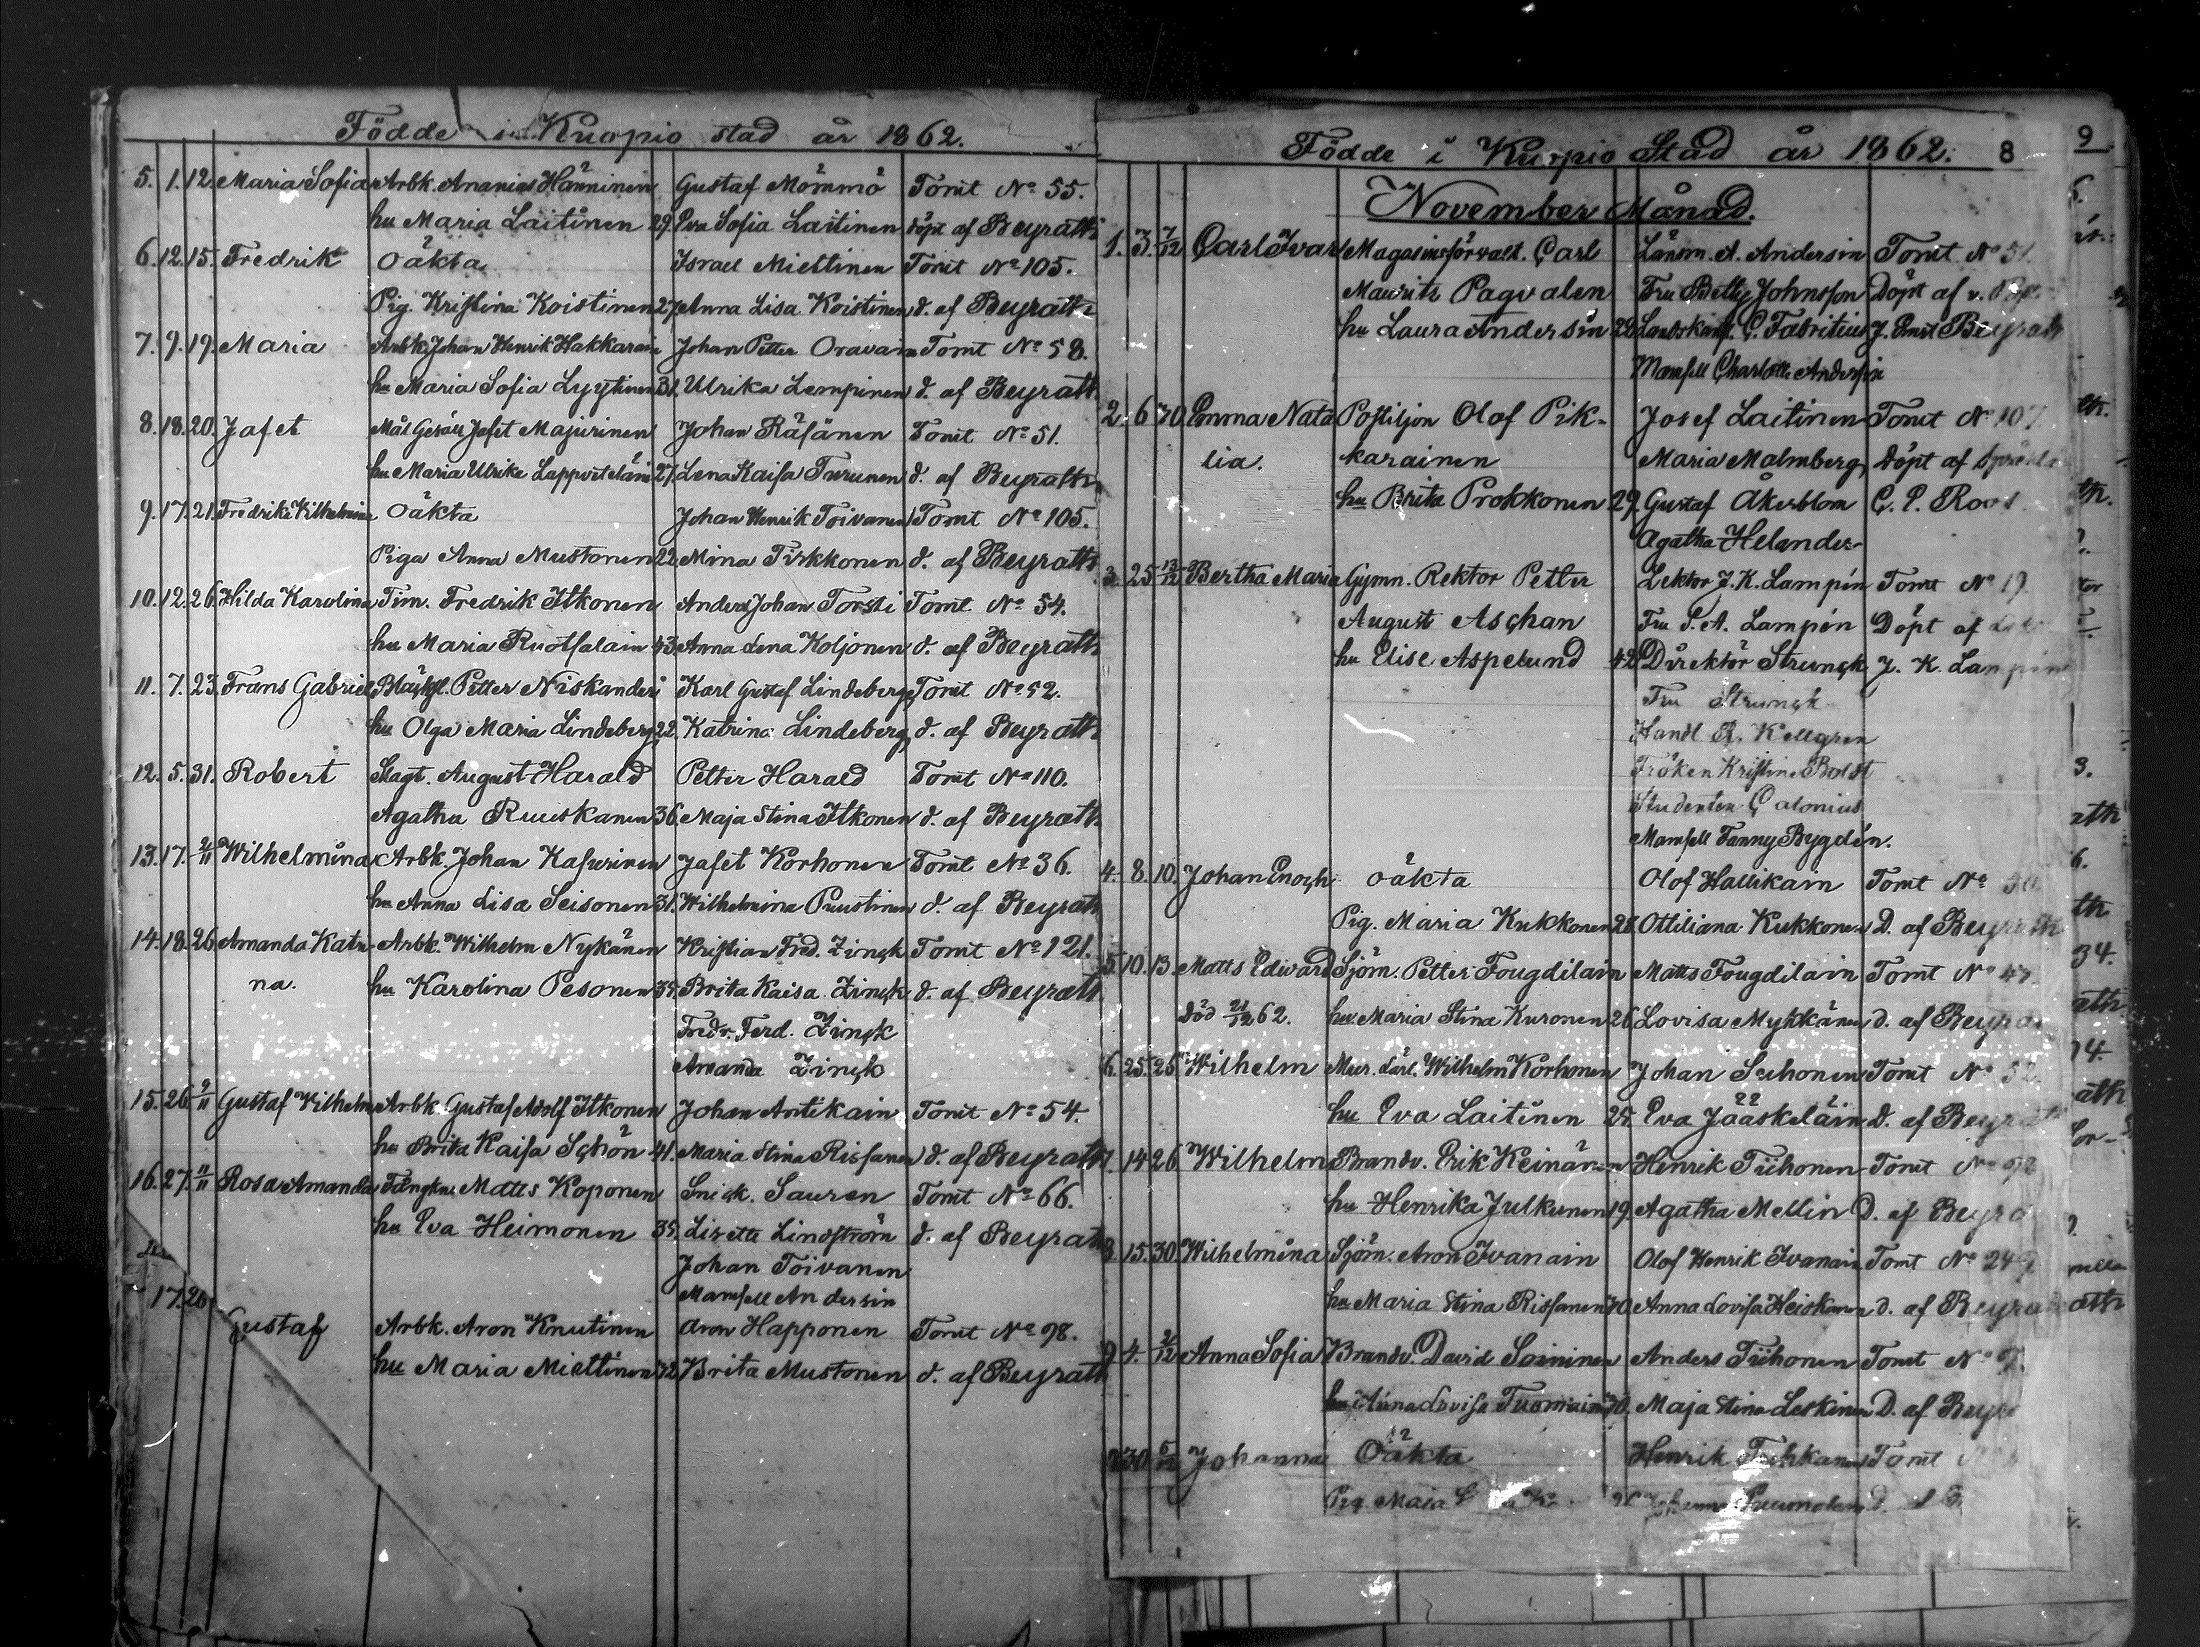 Födde i Kuopio stad år 1862.
5. 1. 12. Maria Sofia Arbk. Ananias Hänninen Gustaf Mömmö Tomt No 55.
hu Maria Laitinen 29. Eva Sofia Laitinen döpt af Beyrath
6. 12. 15. Fredrik Oäkta Israel Miettinen Tomt No 105.
Pig. Kristina Koistinen 27. Anna Lisa Koistinen d. af Beyrath
7. 9. 19. Maria Arbk. Johan Henrik Hakkarain Johan Petter Oravain Tomt No 58.
hu Maria Sofia Lyytinen 31. Ulrika Lempinen d. af Beyrath
8. 18. 20. Jafet Mål. Gesäll Jafet Majurinen Johan Räsänen Tomt No 51.
hu Maria Ulrika 27. Lena Kaisa Turunen d. af Beyrath
9. 17. 21. Fredrika Wilhelmina Oäkta Johan Henrik Toivanen Tomt No 105.
Piga Anna Mustonen 22. Mina Tirkkonen d. af Beyrath
10. 12. 26. Hilda Karolina Tim. Fredrik Itkonen Anders Johan Torsti Tomt No 54.
hu Maria Ruotsalain 43. Anna Lena Koljonen d. af Beyrath
11. 7. 23. Frans Gabriel Petter Niskander Karl Gustaf Lindeberg Tomt No 52.
hu Olga Maria Lindeberg 22. Katrina Lindeberg d. af Beyrath
12. 5. 31. Robert Slagt. August Harald Petter Harald Tomt No 110.
Agatha Ruuskanen 36. Maja Stina Itkonen d. af Beyrath
13. 17. 2/11 Wilhelmina Arbk. Johan Kasurinen Jafet Korhonen Tomt No 36.
hu Anna Lisa Seisonen 31. Wilhelmina Puustinen d. af Beyrath
14. 18. 26. Amanda Katri- Arbk. Wilhelm Nykänen Kristian Fred. Zinck Tomt No 121.
na. hu Karolina Pesonen 35. Brita Kaisa Zinck d. af Beyrath
Fredr. Ferd. Zinck
Amanda Zinck
15. 26. 9/11 Gustaf Wilhelm Arbk. Gustaf Adolf Itkonen Johan Antikain Tomt No 54.
hu Brita Kaisa Schön 41. Maria Stina Rissanen d. af Beyrath
16. 27. 11/11 Rosa Amanda Matts Koponen Snick. Sauren Tomt No 66.
hu Eva Heimonen 35. Lisette Lindström d. af Beyrath
Johan Toivanen
Mamsell Andersin
17. 26 Gustaf Arbk. Aron Knutinen Aron Happonen Tomt No 98.
hu Maria Miettinen Brita Mustonen d. af Beyrath
Födde i Kuopio Stad år 1862. 8
November Månad.
1. 3. 7/12 Carl Ivar Magasinsförvalt. Carl Länsm. A. Andersin Tomt No 51.
Mauritz Pagvalen Fru Betty Johnsson Döpt af v. Past.
hu Laura Andersin 22. Landskamr. C. Fabritius J. Ernst Beyrath
Mamsell Charlotte Andersin
2. 6. 30. Emma Nata Postiljon Olof Pik- Josef Laitinen Tomt No 107
lia. karainen Maria Malmberg döpt af
hu Brita Prokkonen 29. Gustaf Åkerblom C. P. Roos
Agatha Helander
3. 25. 13/12 Bertha Maria Gymn. Rektor Petter Lektor J. K. Lampén Tomt No 19.
August Aschan Fru S. A. Lampén Döpt af
hu Elise Aspelund 42. Direktör Strunck J. K. Lampén
Fru Strunck
Handl. R. Kellgren
Fröken Kristine Boldt
Studenten Calonius
Mamsell Fanny Bygdén.
4. 8. 10. Johan Enoch oäkta Olof Hallikain Tomt No
Pig. Maria Kukkonen 28. Ottiliana Kukkonen D. af Beyrath
5. 10. 13. Matts Edward Sjöm. Petter Fougdilain Matts Fougdilain Tomt No
död 21/12 62. hu Maria Stina Kuronen 26. Lovisa Mykkänen d. af Beyra
6. 25. 26. Wilhelm Mur. lärl. Wilhelm Korhonen Johan Tomt No 52.
hu Eva Laitinen 25. Eva Jääskeläin d. af Beyrath
7. 14 26 Wilhelm Brandv. Erik Keinänen Henrik Tiihonen Tomt No 92
hu Henrika Julkunen 19. Agatha Mellin D. af Beyra
8. 15. 30. Wilhelmina Sjöm. Aron Ivanain Olof Henrik Ivanain Tomt No 249
hu Maria Stina Rissanen Anna Lovisa Heiskanen d. af Beyrath
9. 4. Anna Sofia Brandv. David Soininen Anders Tiihonen Tomt No
hu Anna Lovisa Maja Stina Leskinen D. af Beyr
30. 5/12 Johanna Oäkta Henrik Tomt
Pig. Maja
9